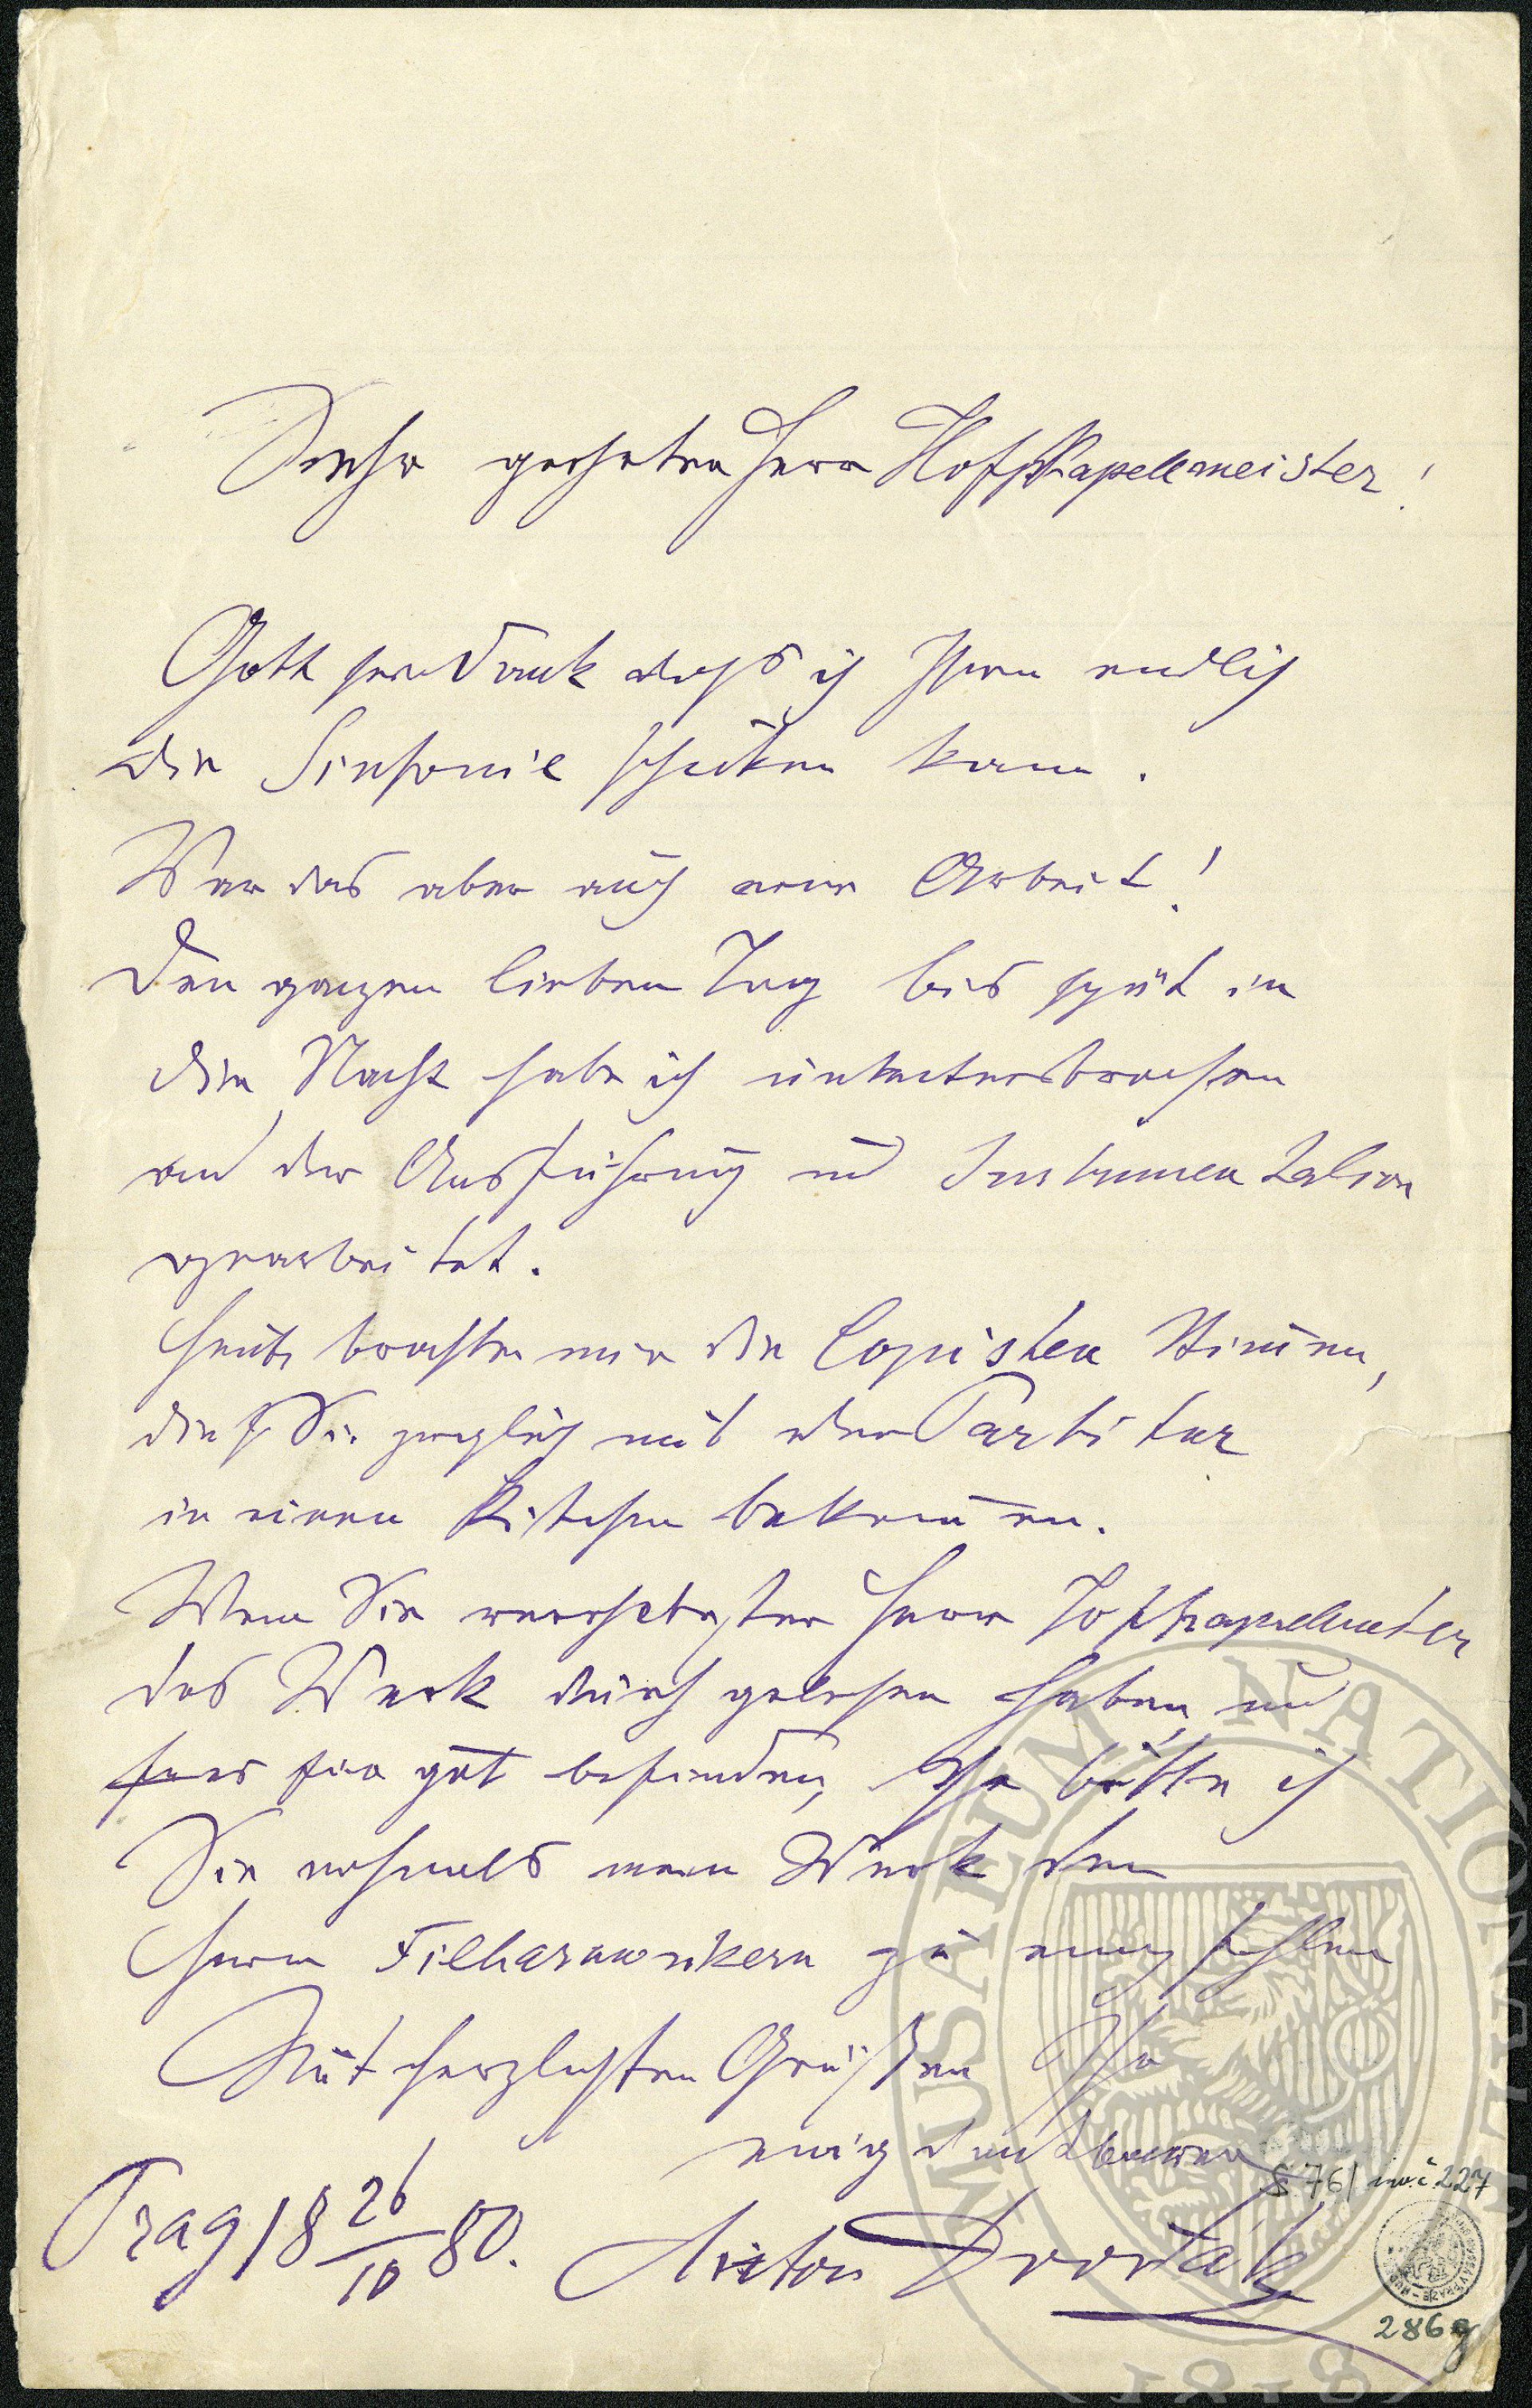 Sehr geehrter Herr HofKapellmeister!
Gott sei Dank daß ich Ihnen endlich
die Sinfonie schicken kann.
War das aber auch eine Arbeit!
Den ganzen lieben Tag bis spät in
die Nacht habe ich ununterbrochen
an der Ausführung und Instrumentation
gearbeitet.
Heute brachten mir die Copisten Stim̅en,
die Sie zugleich mit der Partitur
in einem Kistchen bekom̅en.
Wenn Sie verehrtester Herr Hofkapellmeister
das Werk durch gelesen haben, und
es für gut befinden, so bitte ich
Sie nochmals mein Werk den
Herrn Filharmonikern zu empfehlen
Mit herzlichsten Grüßen Ihr
ewig dankbarer
Prag 18 26/10 80.
Anton Dvořák
S. 76/ inv. č 227
286g
MUSAEUM NATIONALE
1818